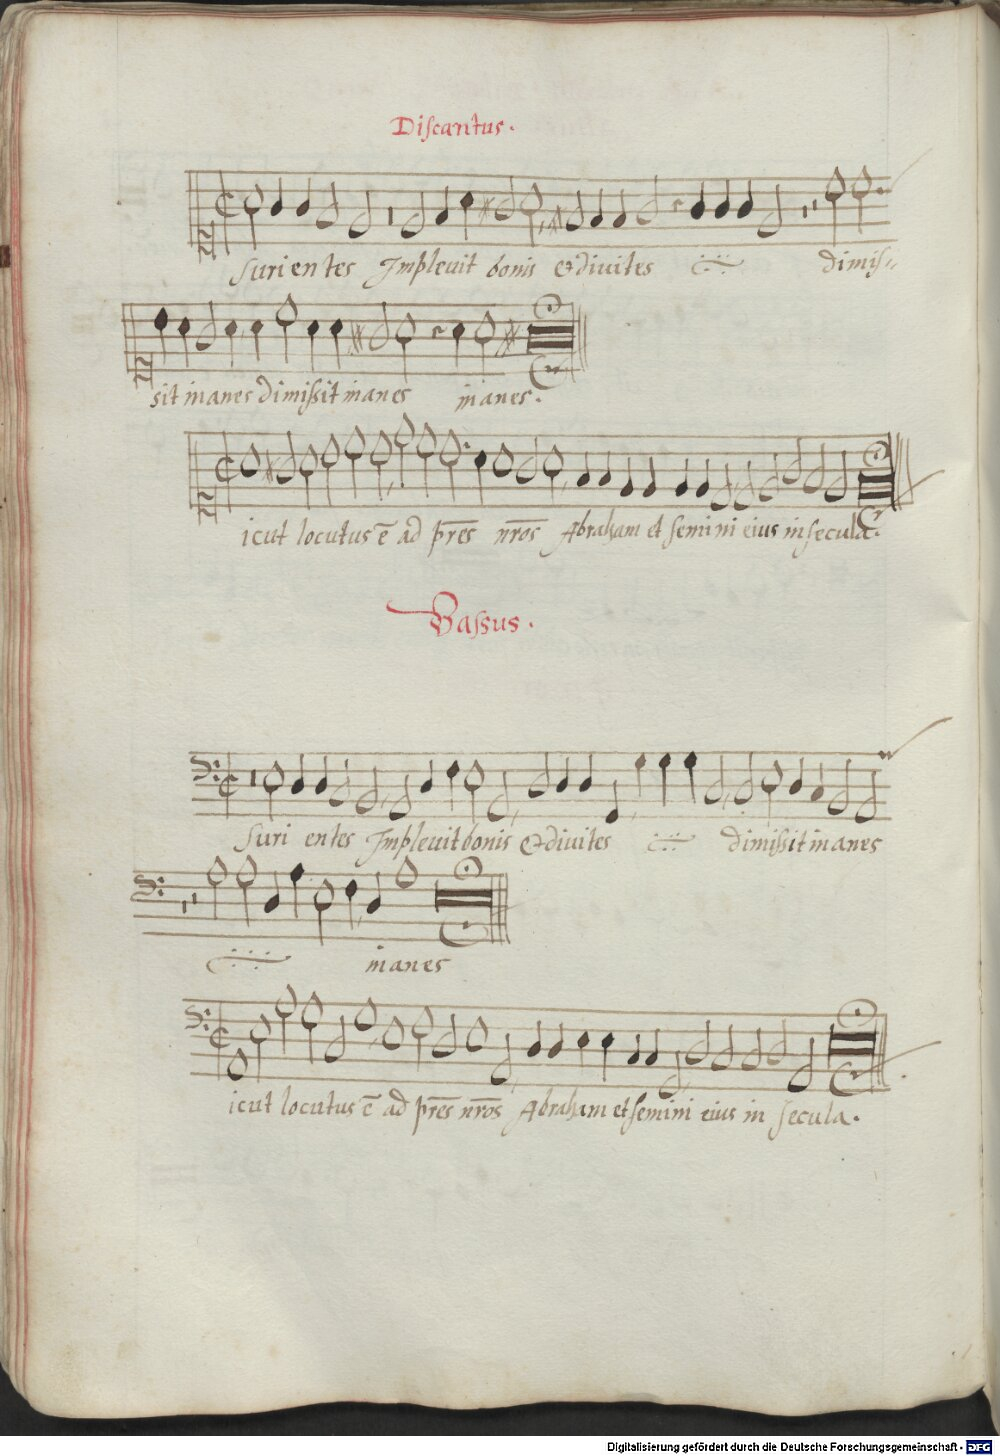 Discantus.
Surientes Implevit bonis & divites dimis-
sit inanes dimissit inanes inanes.
icut locutus ē ad pr̄es nr̄os Abraham et semini eius in secula.
Bassus.
Suri entes Implevit bonis & divites dimissit inanes
inanes
icut locutus ē ad pr̄es nr̄os Abraham et semini eius in secula.
Digitalisierung gefördert durch die Deutsche Forschungsgemeinschaft - DFG